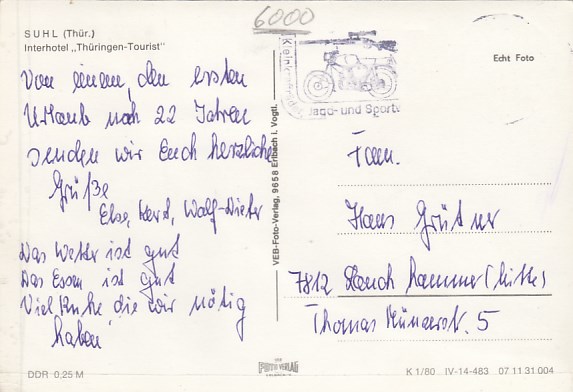 6000
SUHL (Thür.)
Interhotel „Thüringen-Tourist"
Echt Foto
Von einem, den ersten
Urlaub nach 22 Jahren
senden wir Euch herzliche
Grüße
Else, Horst, Wolf-Dieter
Das Wetter ist gut
Das Essen ist gut
Viel Ruhe die wir nötig
haben
VEB-Foto-Verlag, 9658 Erlbach i. Vogtl.
Jagd- und Sportw
Fam.
Hans Grützner
7812 Lauchhammer (Mitte)
Thomas Münzerstr. 5
DDR 0,25 M
K 1/80 IV-14-483 07 11 31 004